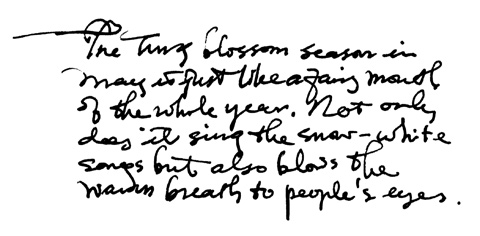 The Tung blossom season in
May is just like a fairy mouth
of the whole year. Not only
does it sing the snow-white
songs but also blows the
warm breath to people's eyes.